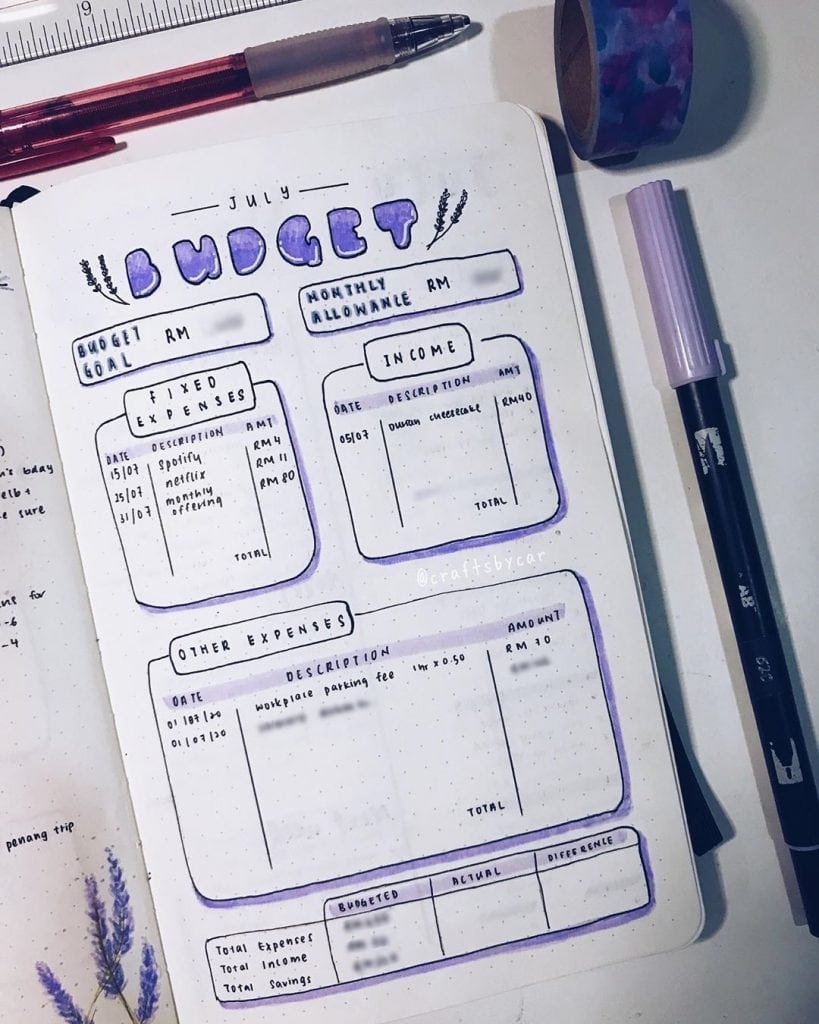 9
JULY
BUDGET
BUDGET GOAL RM
MONTHLY ALLOWANCE RM
FIXED EXPENSES
DATE DESCRIPTION AMT
15/07 Spotify RM4
25/07 netflix RM 11
31/07 monthly offering RM 80
TOTAL
INCOME
DATE DESCRIPTION AMT
05/07 cheesecake RM40
TOTAL
@craftsbycar
OTHER EXPENSES
DATE DESCRIPTION AMOUNT
01/07/20 workplace parking fee 1hr x 0.50 RM 70
01/07/20
TOTAL
BUDGETED ACTUAL DIFFERENCE
Total Expenses
Total Income
Total Savings
bday
sure
for
-6
-4
penang trip
AB
620